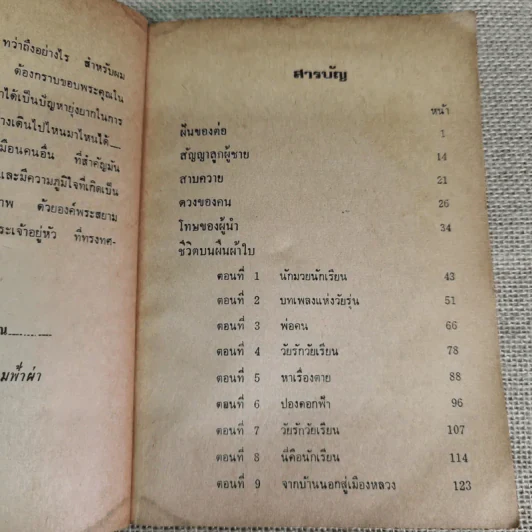 ทว่าถึงอย่างไร สำหรับผม
ต้องกราบขอบพระคุณใน
าได้เป็นปัญหายุ่งยากในการ
างเดินไปไหนมาไหนได้—
มือนคนอื่น ที่สำคัญมัน
และมีความภูมิใจที่เกิดเป็น
าพ ด้วยองค์พระสยาม
ระเจ้าอยู่หัว ที่ทรงทศ-
ณ
มฟ้าผ่า
สารบัญ
หน้า
ผืนของต่อ 1
สัญญาลูกผู้ชาย 14
สาบควาย 21
ดวงของคน 26
โทษของผู้นำ 34
ชีวิตบนผืนผ้าใบ
ตอนที่ 1 นักมวยนักเรียน 43
ตอนที่ 2 บทเพลงแห่งวัยรุ่น 51
ตอนที่ 3 พ่อคน 66
ตอนที่ 4 วัยรักวัยเรียน 78
ตอนที่ 5 หาเรื่องตาย 88
ตอนที่ 6 ปองดอกฟ้า 96
ตอนที่ 7 วัยรักวัยเรียน 107
ตอนที่ 8 นี่คือนักเรียน 114
ตอนที่ 9 จากบ้านนอกสู่เมืองหลวง 123